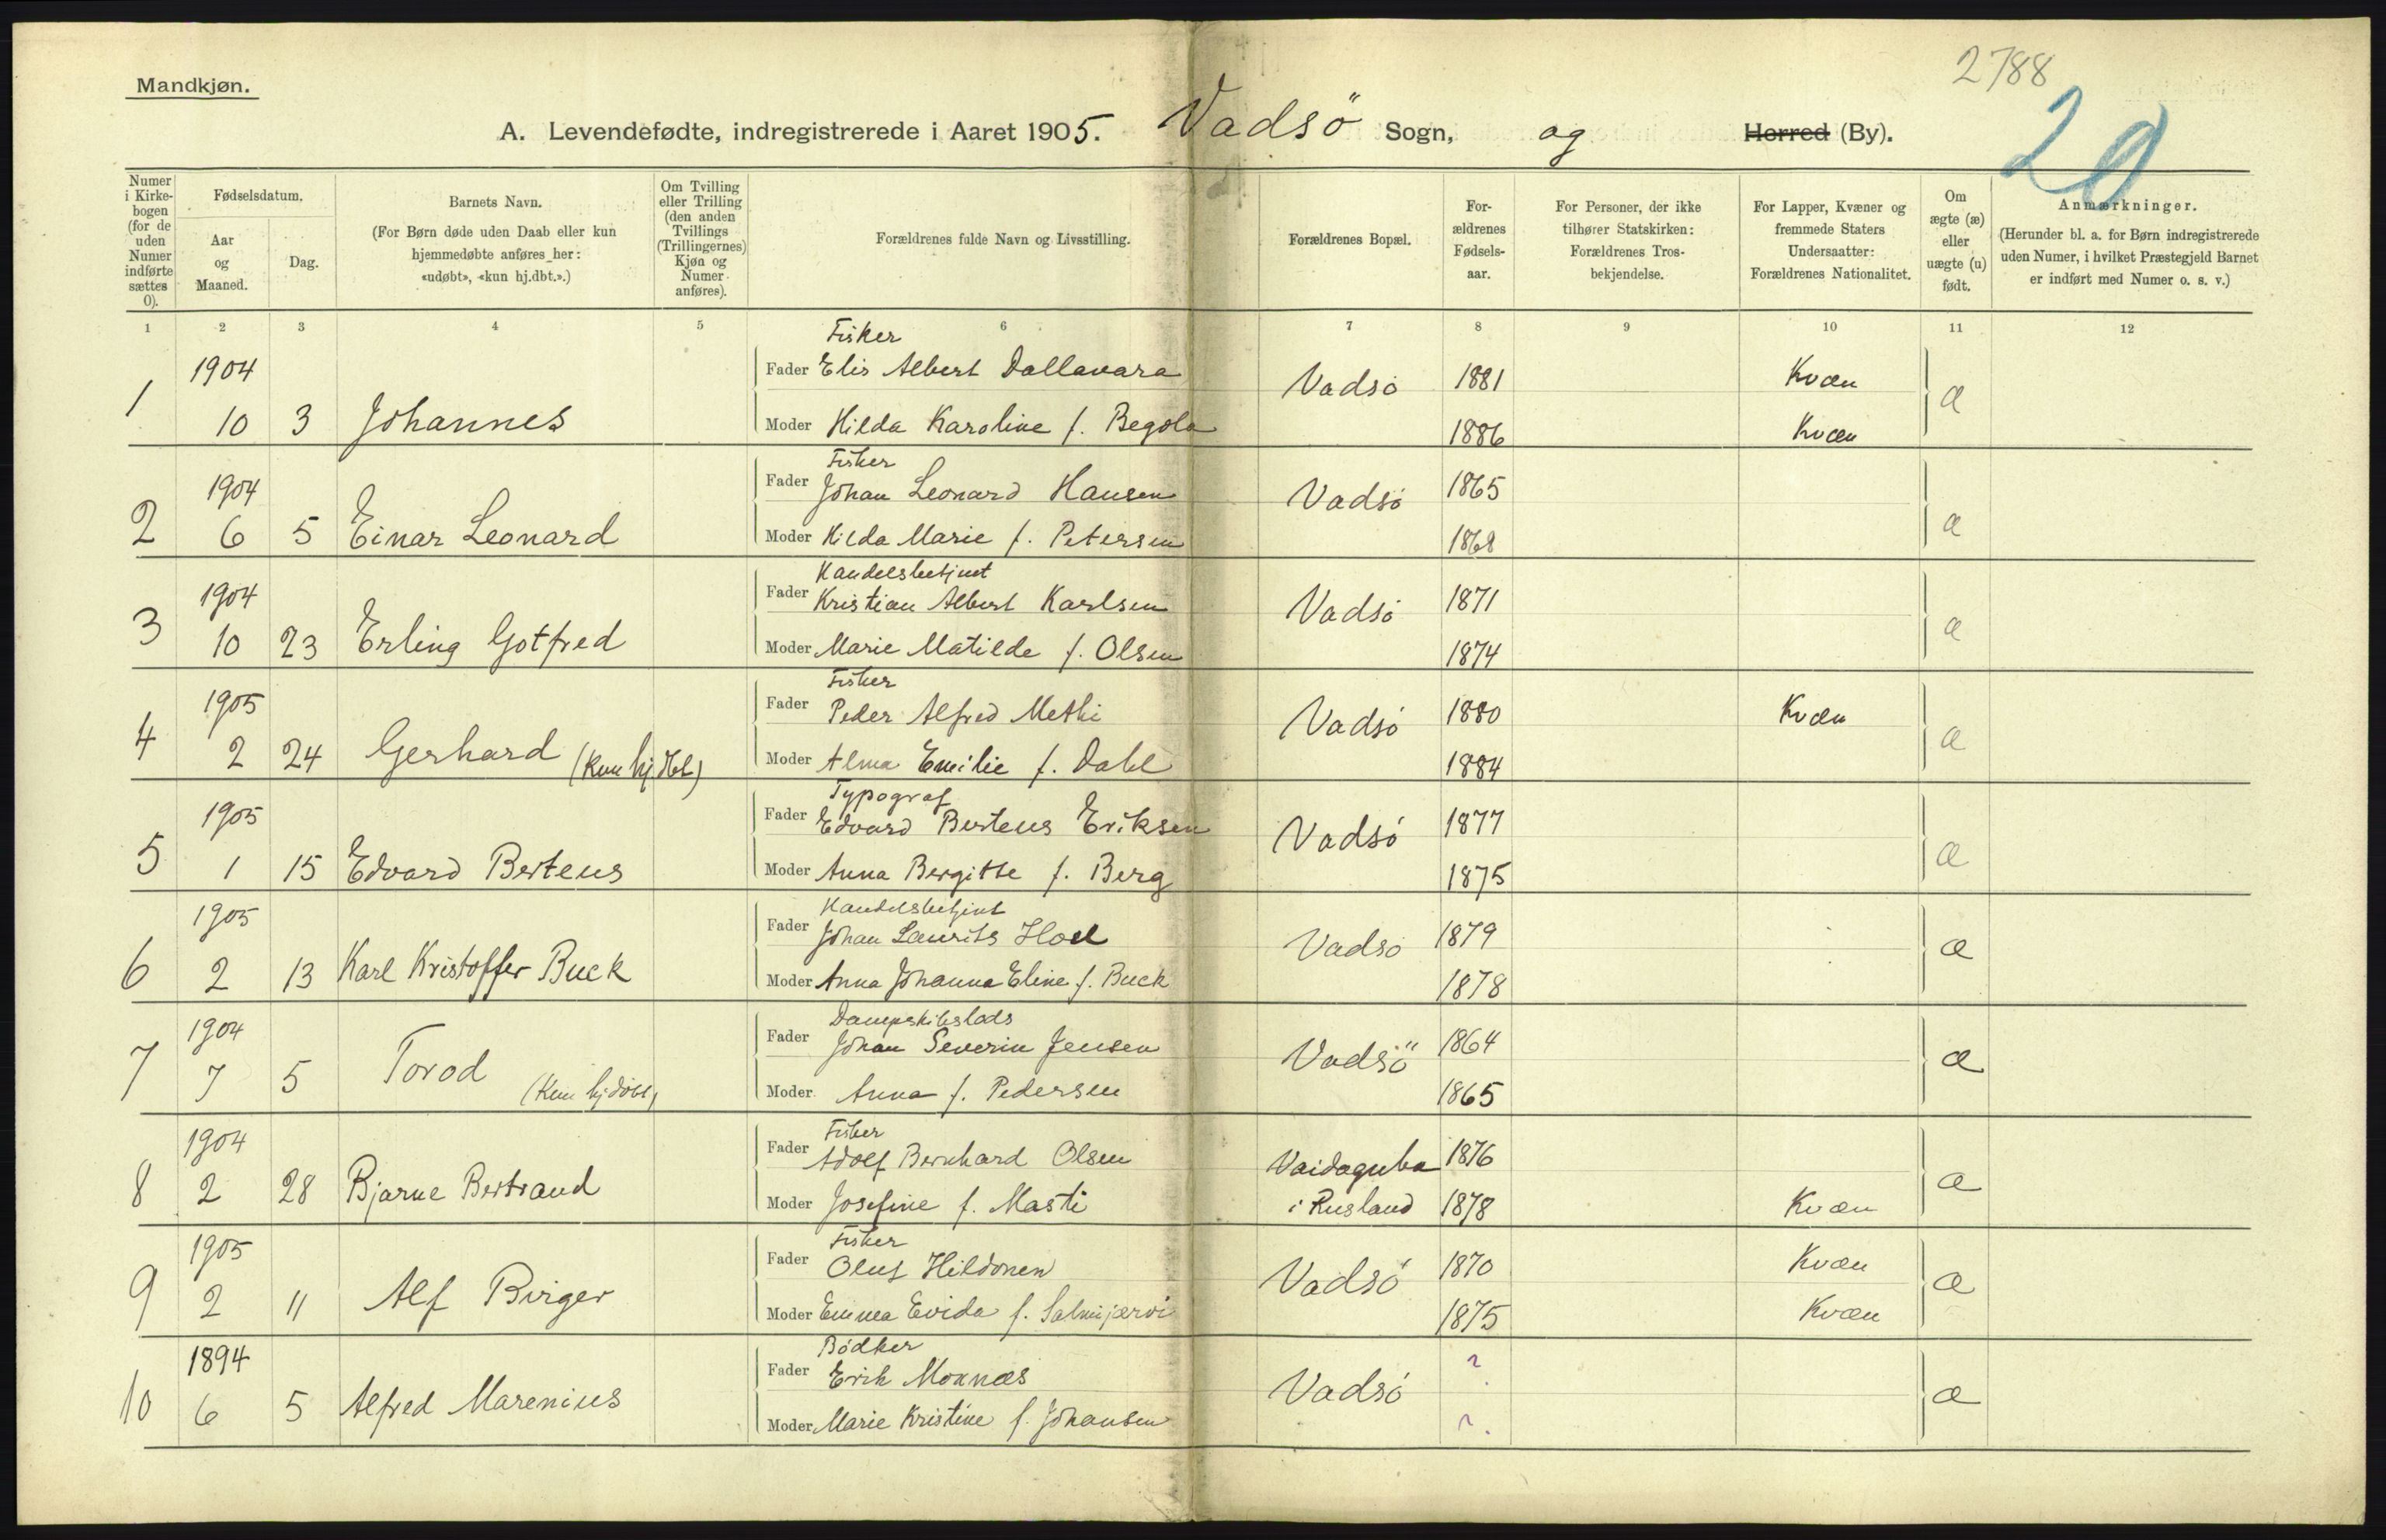 2788
Mandkjøn.
A. Levendefødte, indregistrerede i Aaret 1905. Vadsö Sogn, og Herred (By).
20
Numer i Kirkebogen (for de uden Numer indførte sættes 0).
Fødselsdatum.
Aar og Maaned.
Dag.
Barnets Navn.
(For Børn døde uden Daab eller kun hjemmedøbte anføres her: «udøbt», «kun hj.dbt.».)
Om Tvilling eller Trilling (den anden Tvillings (Trillingernes) Kjøn og Numer anføres).
Forældrenes fulde Navn og Livsstilling.
Forældrenes Bopæl.
Forældrenes Fødselsaar.
For Personer, der ikke tilhører Statskirken: Forældrenes Trosbekjendelse.
For Lapper, Kvæner og fremmede Staters Undersaatter: Forældrenes Nationalitet.
Om ægte (æ) eller uægte (u) født.
Anmærkninger.
(Herunder bl. a. for Børn indregistrerede uden Numer, i hvilket Præstegjeld Barnet er indført med Numer o. s. v.)
1 2 3 4 5 6 7 8 9 10 11 12
Fisker
1904 Fader Elis Albert Dallavara Vadsö 1881 Kvæn
1 10 3 Johannes Moder Hilda Karoline f. Begola 1886 Kvæn æ
Fisker
1904 Fader Johan Leonard Hansen Vadsö 1865
2 6 5 Einar Leonard Moder Hilda Marie f. Petersen 1868 æ
Handelsbetjent
1904 Fader Kristian Albert Karlsen Vadsö 1871
3 10 23 Erling Gotfred Moder Marie Matilde f. Olsen 1874 æ
Fisker
1905 Fader Peder Alfred Methi Vadsö 1880 Kvæn
4 2 24 Gerhard (Kun hj dbt) Moder Alma Emilie f. Dahl 1884 æ
Typograf
1905 Fader Edvard Berteus Eriksen Vadsö 1877
5 1 15 Edvard Berteus Moder Anna Bergitte f. Berg 1875 æ
Handelsbetjent
1905 Fader Johan Laurits Hoel Vadsö 1879
6 2 13 Karl Kristoffer Buck Moder Anna Johanna Eline f. Buck 1878 æ
Dampskibslods
1904 Fader Johan Severin Jensen Vadsö 1864
7 7 5 Torod (Kun hj döbt) Moder Anna f. Pedersen 1865 æ
Fisker
1904 Fader Adolf Bernhard Olsen Vaidaguba 1876
8 2 28 Bjarne Bertrand Moder Josefine f. Masti i Rusland 1878 Kvæn æ
Fisker
1905 Fader Oluf Hildonen Vadsö 1870 Kvæn
9 2 11 Alf Birger Moder Emma Evida f. Salmijærvi 1875 Kvæn æ
Bödker
1894 Fader Erik Moxnæs Vadsö ?
10 6 5 Alfred Marenius Moder Marie Kristine f. Johansen ? æ